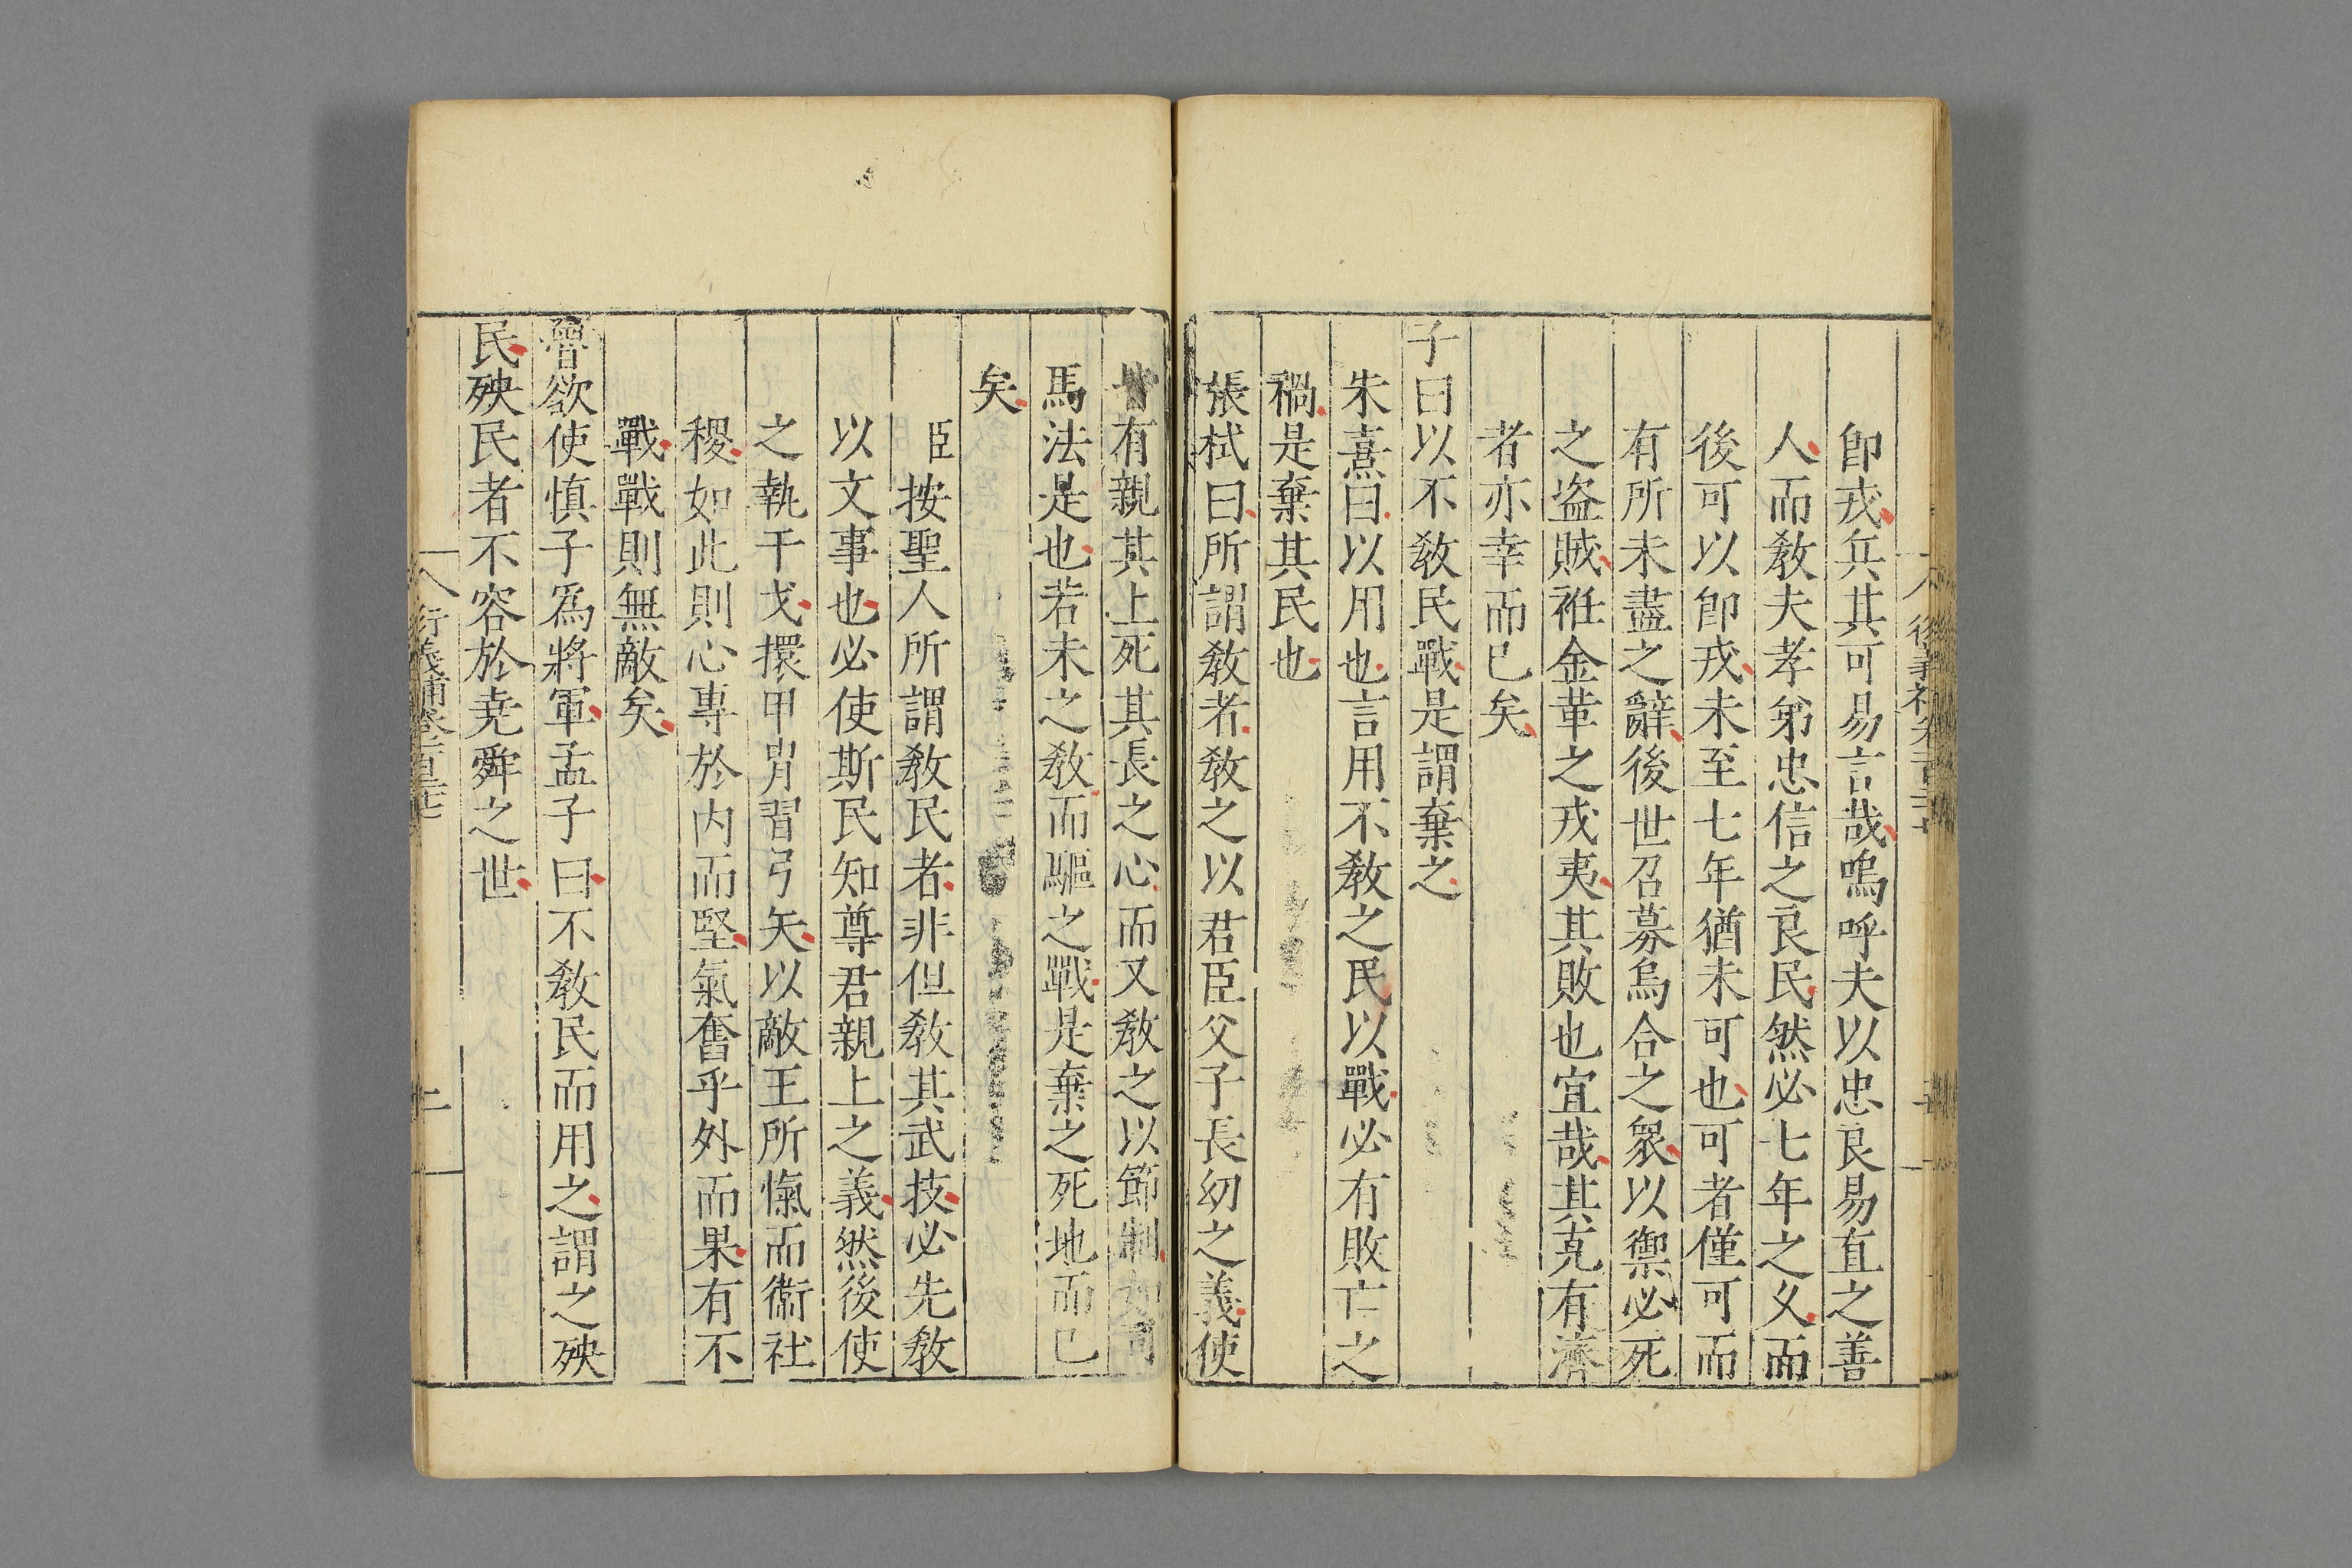 即戎兵其可易言哉嗚呼夫以忠良易直之善
人而敎夫孝弟忠信之良民然必七年之久而
後可以即戎未至七年猶未可也可者僅可而
有所未盡之辭後世召募烏合之衆以禦必死
之盗賊袵金革之戎夷其敗也宜哉其克有濟
者亦幸而已矣
子曰以不敎民戰是謂棄之
朱熹曰以用也言用不敎之民以戰必有敗亡之
禍是棄其民也
張栻曰所謂敎者敎之以君臣父子長幼之義使
皆有親其上死其長之心而又敎之以節制如司
馬法是也若未之敎而驅之戰是棄之死地而已
矣
臣按聖人所謂敎民者非但敎其武技必先敎
以文事也必使斯民知尊君親上之義然後使
之執干戈擐甲冑習弓矢以敵王所愾而衞社
稷如此則心專於内而堅氣奮乎外而果有不
戰戰則無敵矣
魯欲使慎子爲將軍孟子曰不敎民而用之謂之殃
民殃民者不容於堯舜之世
衍義補卷一百三十七
二